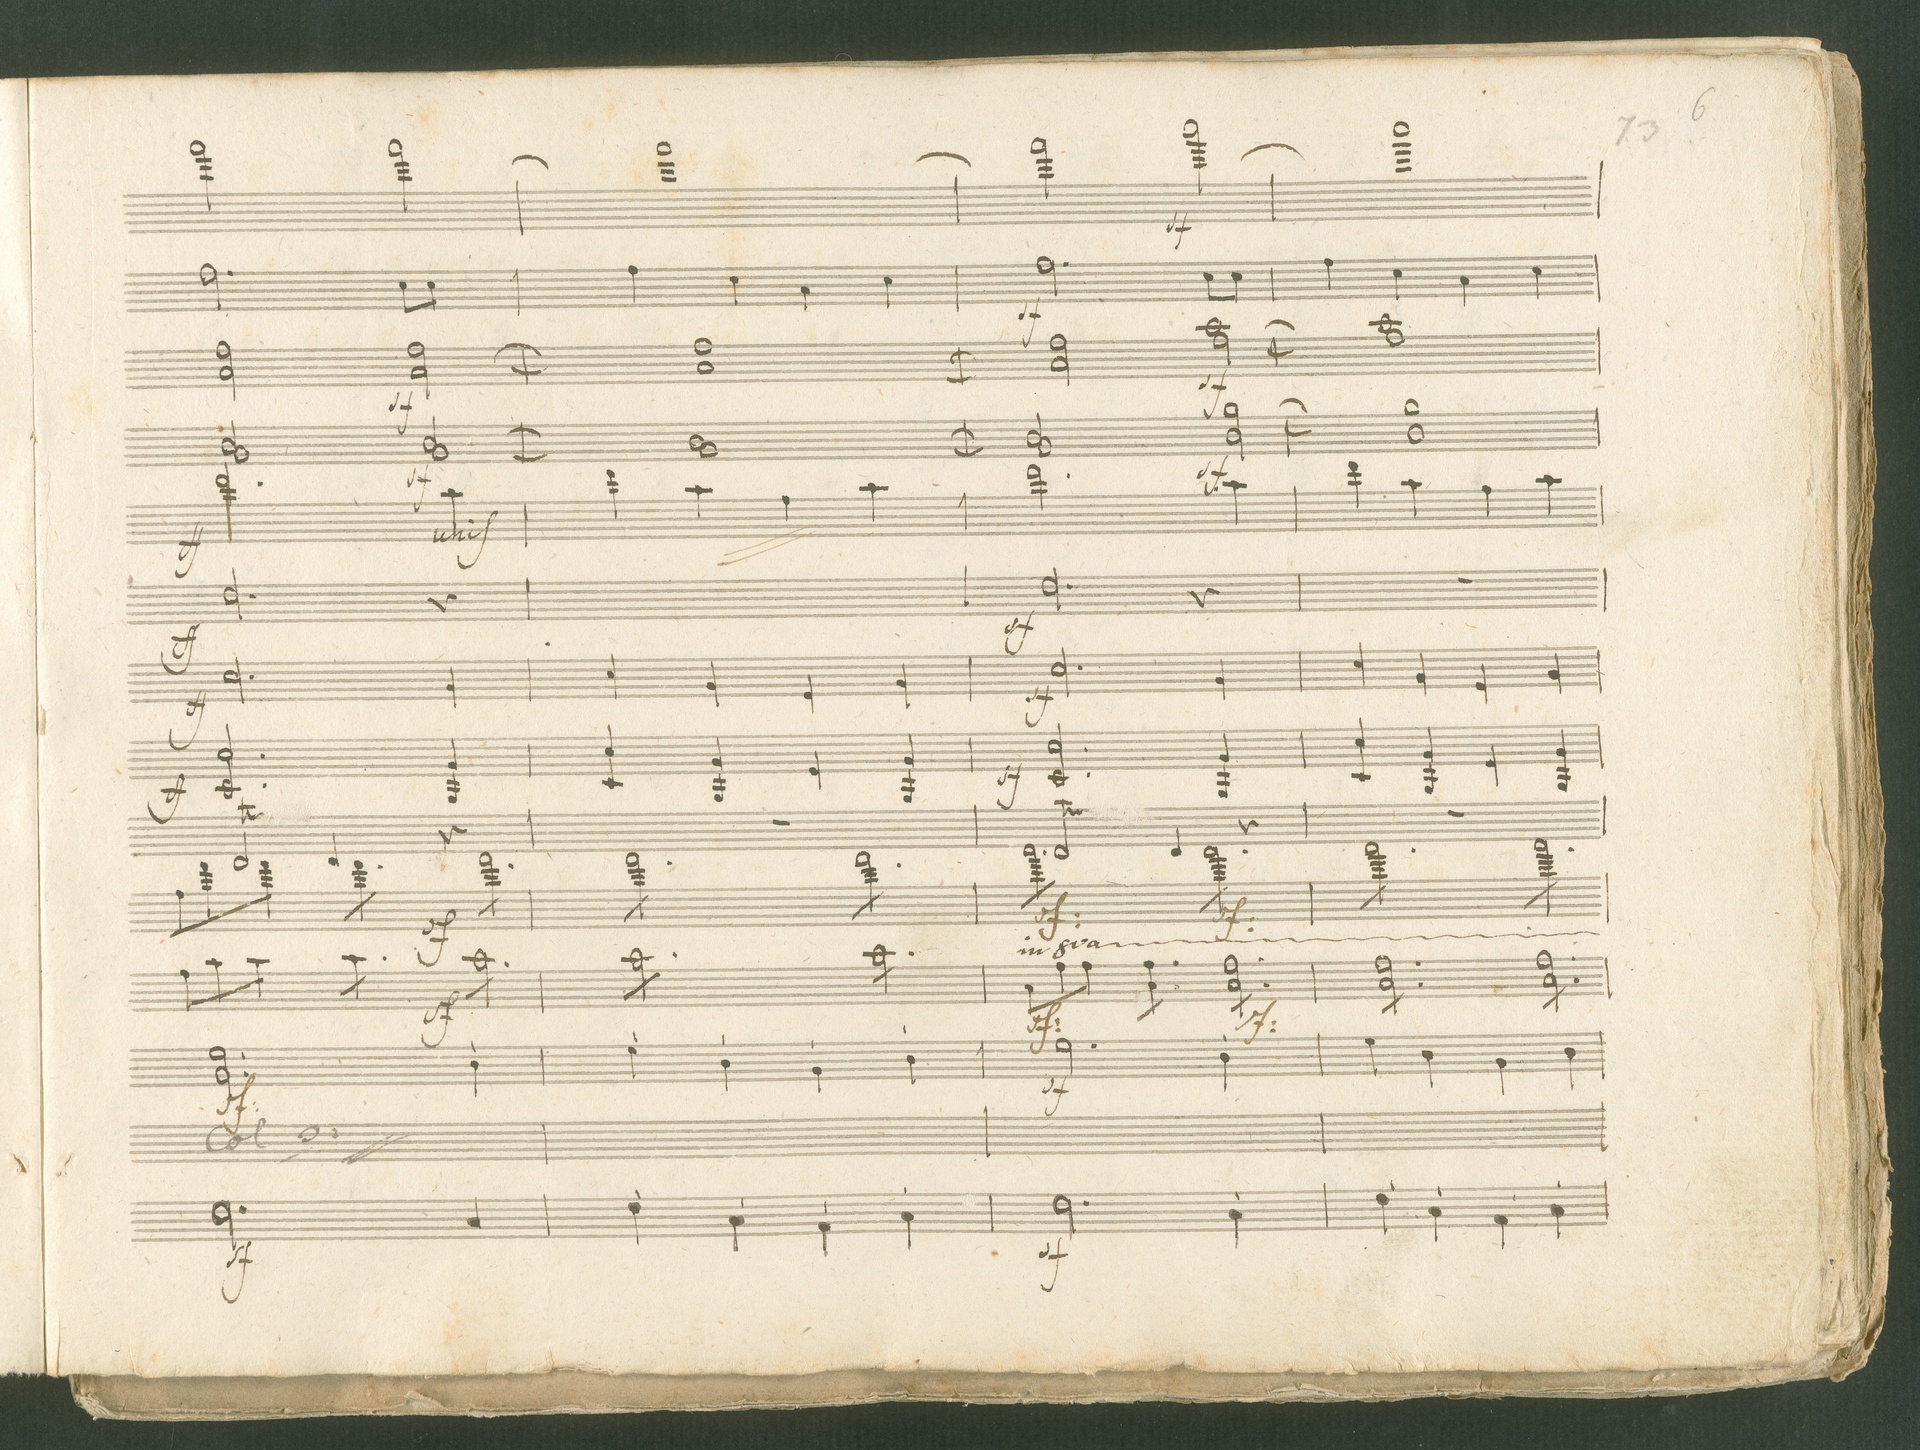 73 6
sf
sf
sf sf
sf sf
sf unis
sf sf
sf sf
sf sf
tr tr
sf sf: sf:
in 8va
sf sf: sf:
sf: sf
Col
sf sf